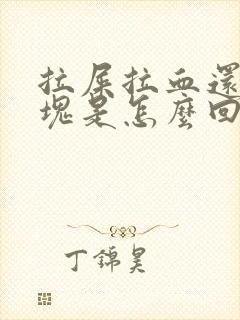 拉屎拉血還
塊是怎麼回
丁錦昊